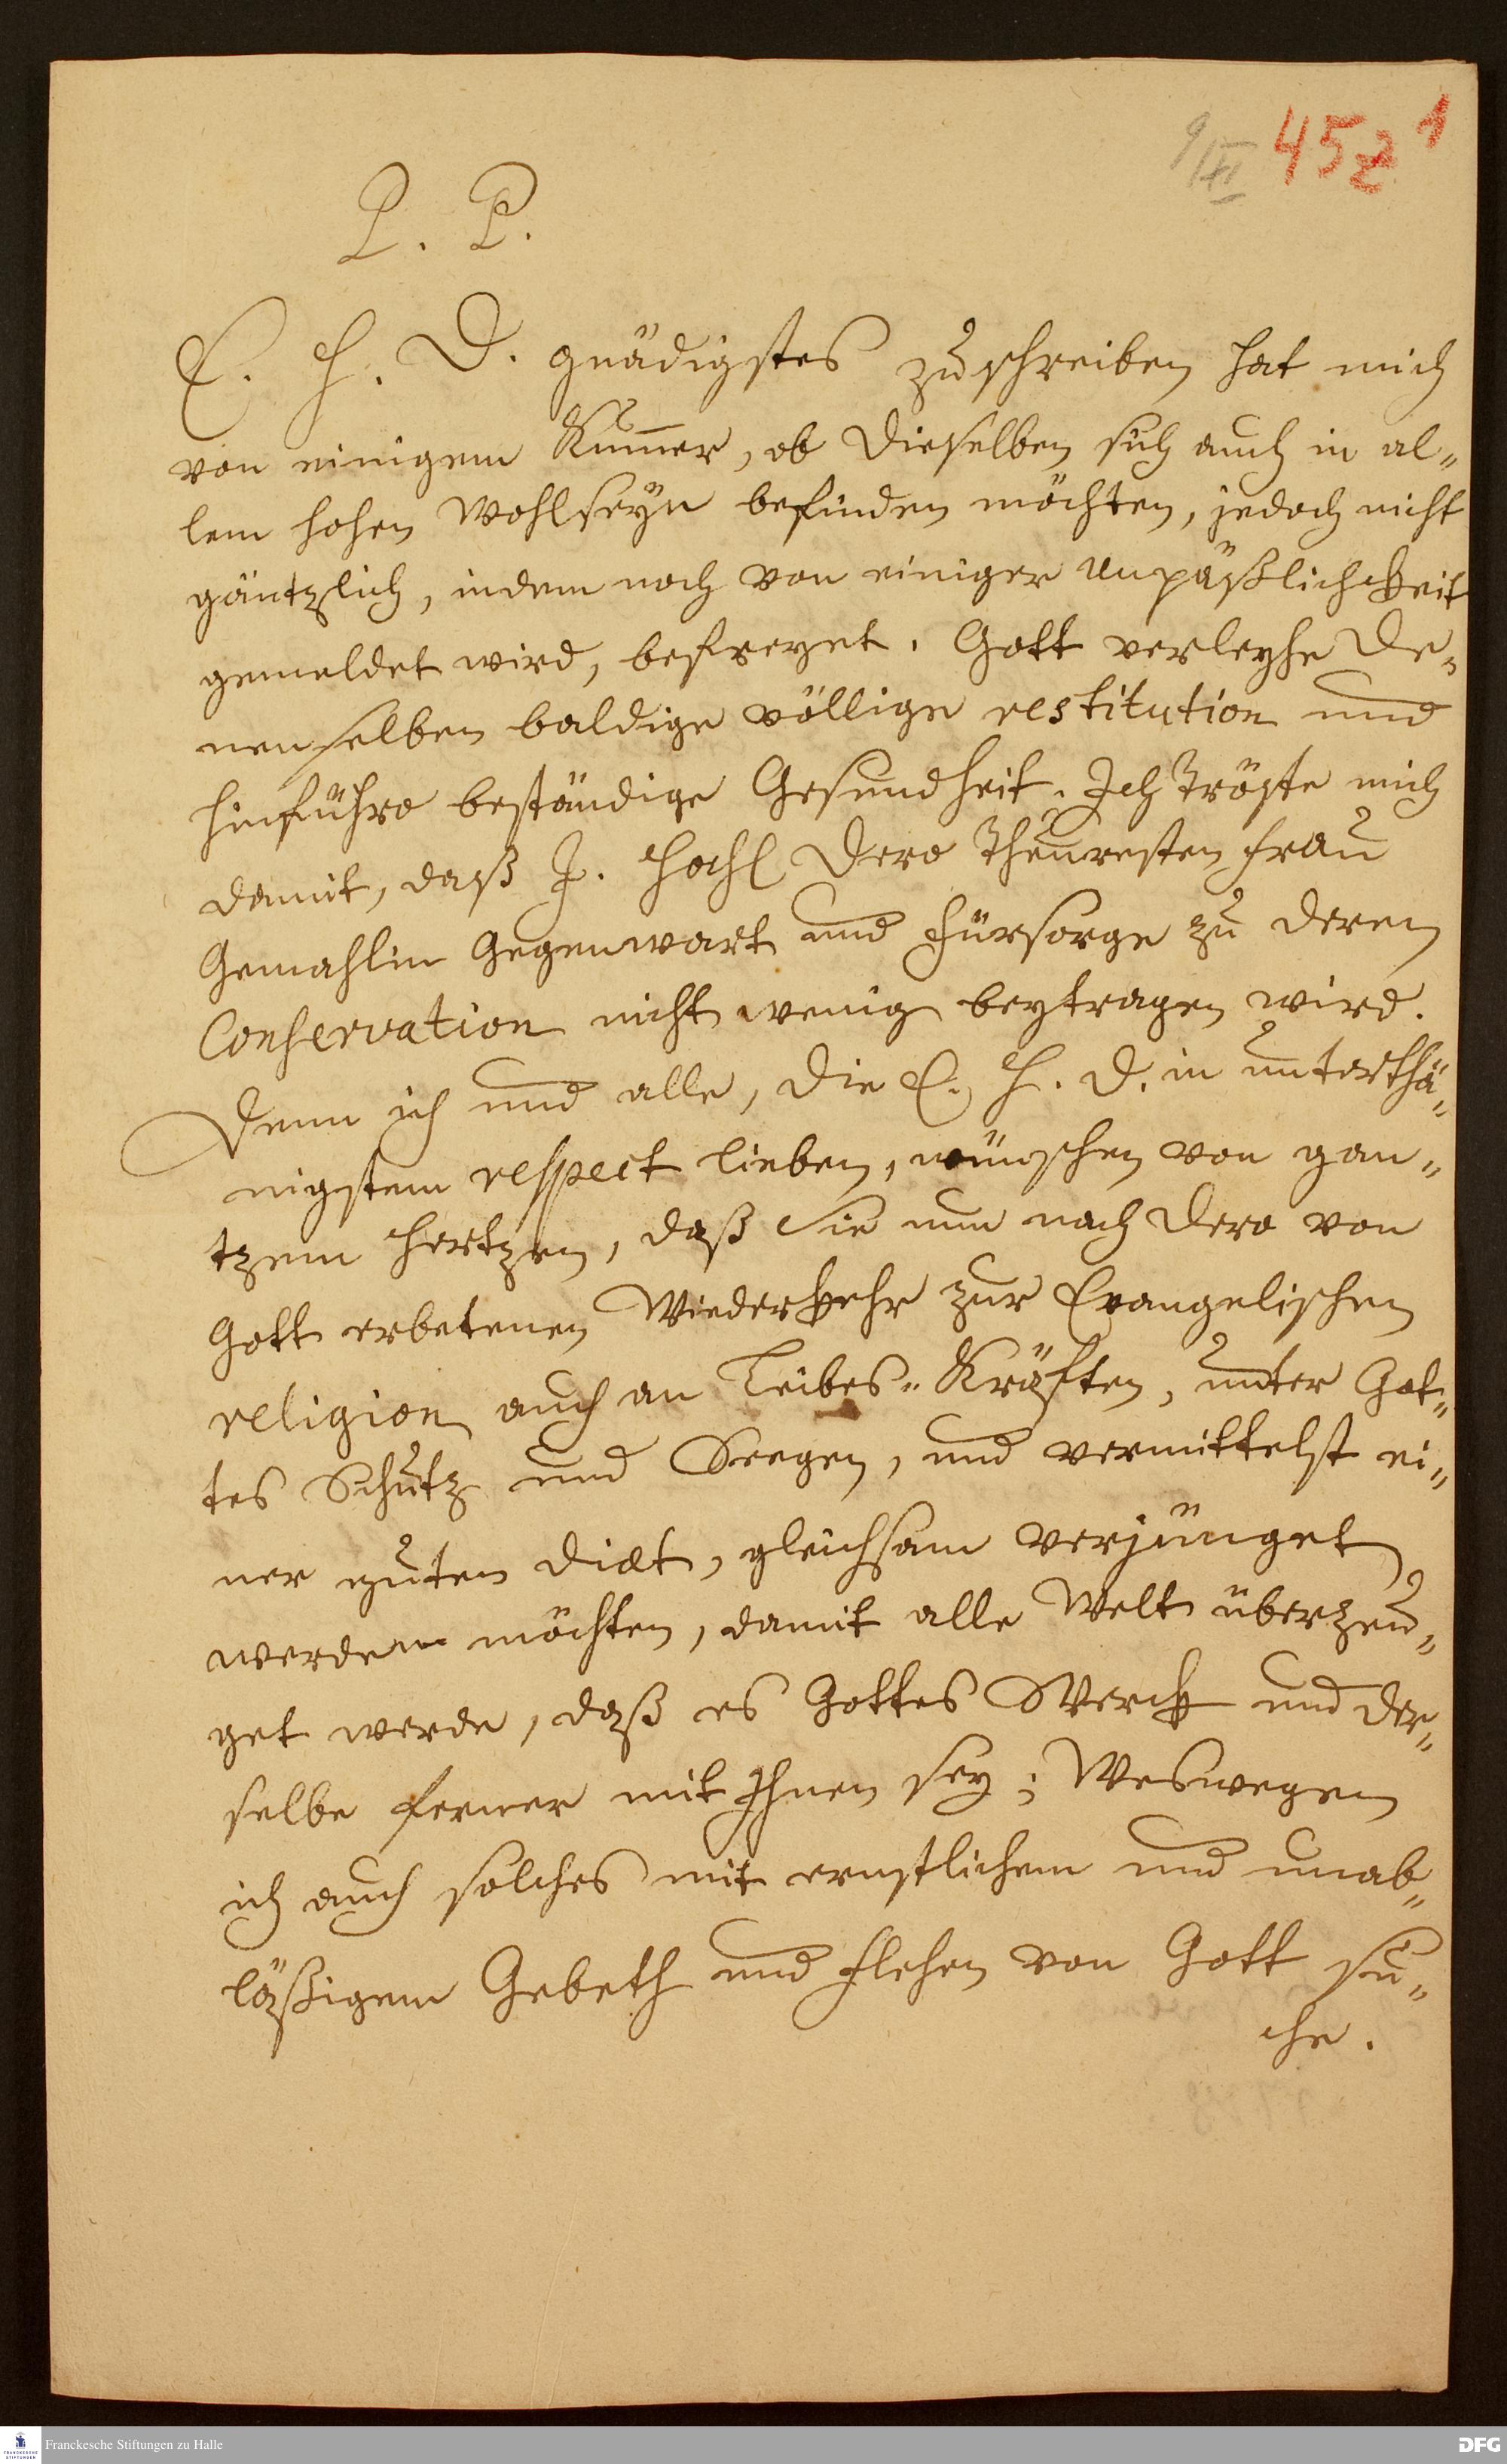 9/XI 45z 1
P. P.
E. H. D. gnädigstes zuschreiben hat mich
von einigem Kum̄er, ob dieselben sich auch in al„
lem hohen Wohlseyn befinden möchten, jedoch nicht
gäntzlich, indem noch von einiger unpäßlichckeit
gemeldet wird, befreyet. Gott verleyhe De„
nenselben baldige völlige restitution und
hinführo beständige Gesundheit. Ich tröste mich
damit, daß J. Hochl Dero theuresten Frau
Gemahlin Gegenwart und Fürsorge zu deren
Conservation nicht wenig beytragen wird.
Denn ich und alle, die E. H. D. in unterthä„
nigstem respect lieben, wünschen von gan„
tzem Hertzen, daß Sie nun nach Dero von
Gott erbetenen Wiederkehr zur Evangelischen
religion auch an Leibes„Kräften, unter Got„
tes Schutz und Seegen, und vermittelst ei„
ner guten diæt, gleichsam verjünget
werden möchten, damit alle Welt überzeu„
get werde, daß es Gottes Werck und der„
selbe ferner mit Ihnen sey; Weswegen
ich auch solches mit ernstlichem und unab„
läßigem Gebeth und flehen von Gott su„
che.
Franckesche Stiftungen zu Halle
DFG